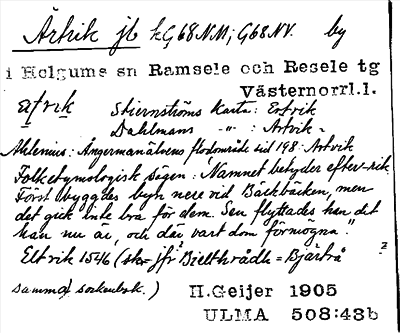 Årtrik jb kG68NM; G68NV. by
i Helgums sn Ramsele och Resele tg
Västernorrl.l.
ạtrik Stiernströms Karta: Ertrik
Dahlmans -"- : Artvik -
Ahlenius: Ångermanälvens flodområde sid 198: Artvik
Folketymologisk sägen: Namnet betyder efter-rik.
Först byggdes byn nere vid Bäckbäcken, men
det gick inte bra för dem. Sen flyttades han dit
han nu är, och där vart dom förmögna."
Eltrik 1546 (skr jfr Bielthrådh = Bjärtrå ?
samma sockenbok.) H.Geijer 1905
ULMA 508:48b